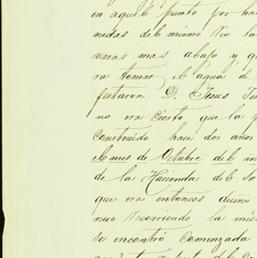 en aquel punto por ha
medas del mismo Rio la
varas mas abajo y q
ra tomar el agua d
festaron D. Jesus Te
no era cierto que la p
construido hace dos años
el mes de Octubre del
de la Hacienda del So
que era entonces dueño
nuo recorriendo la mis
se encontró comenzada